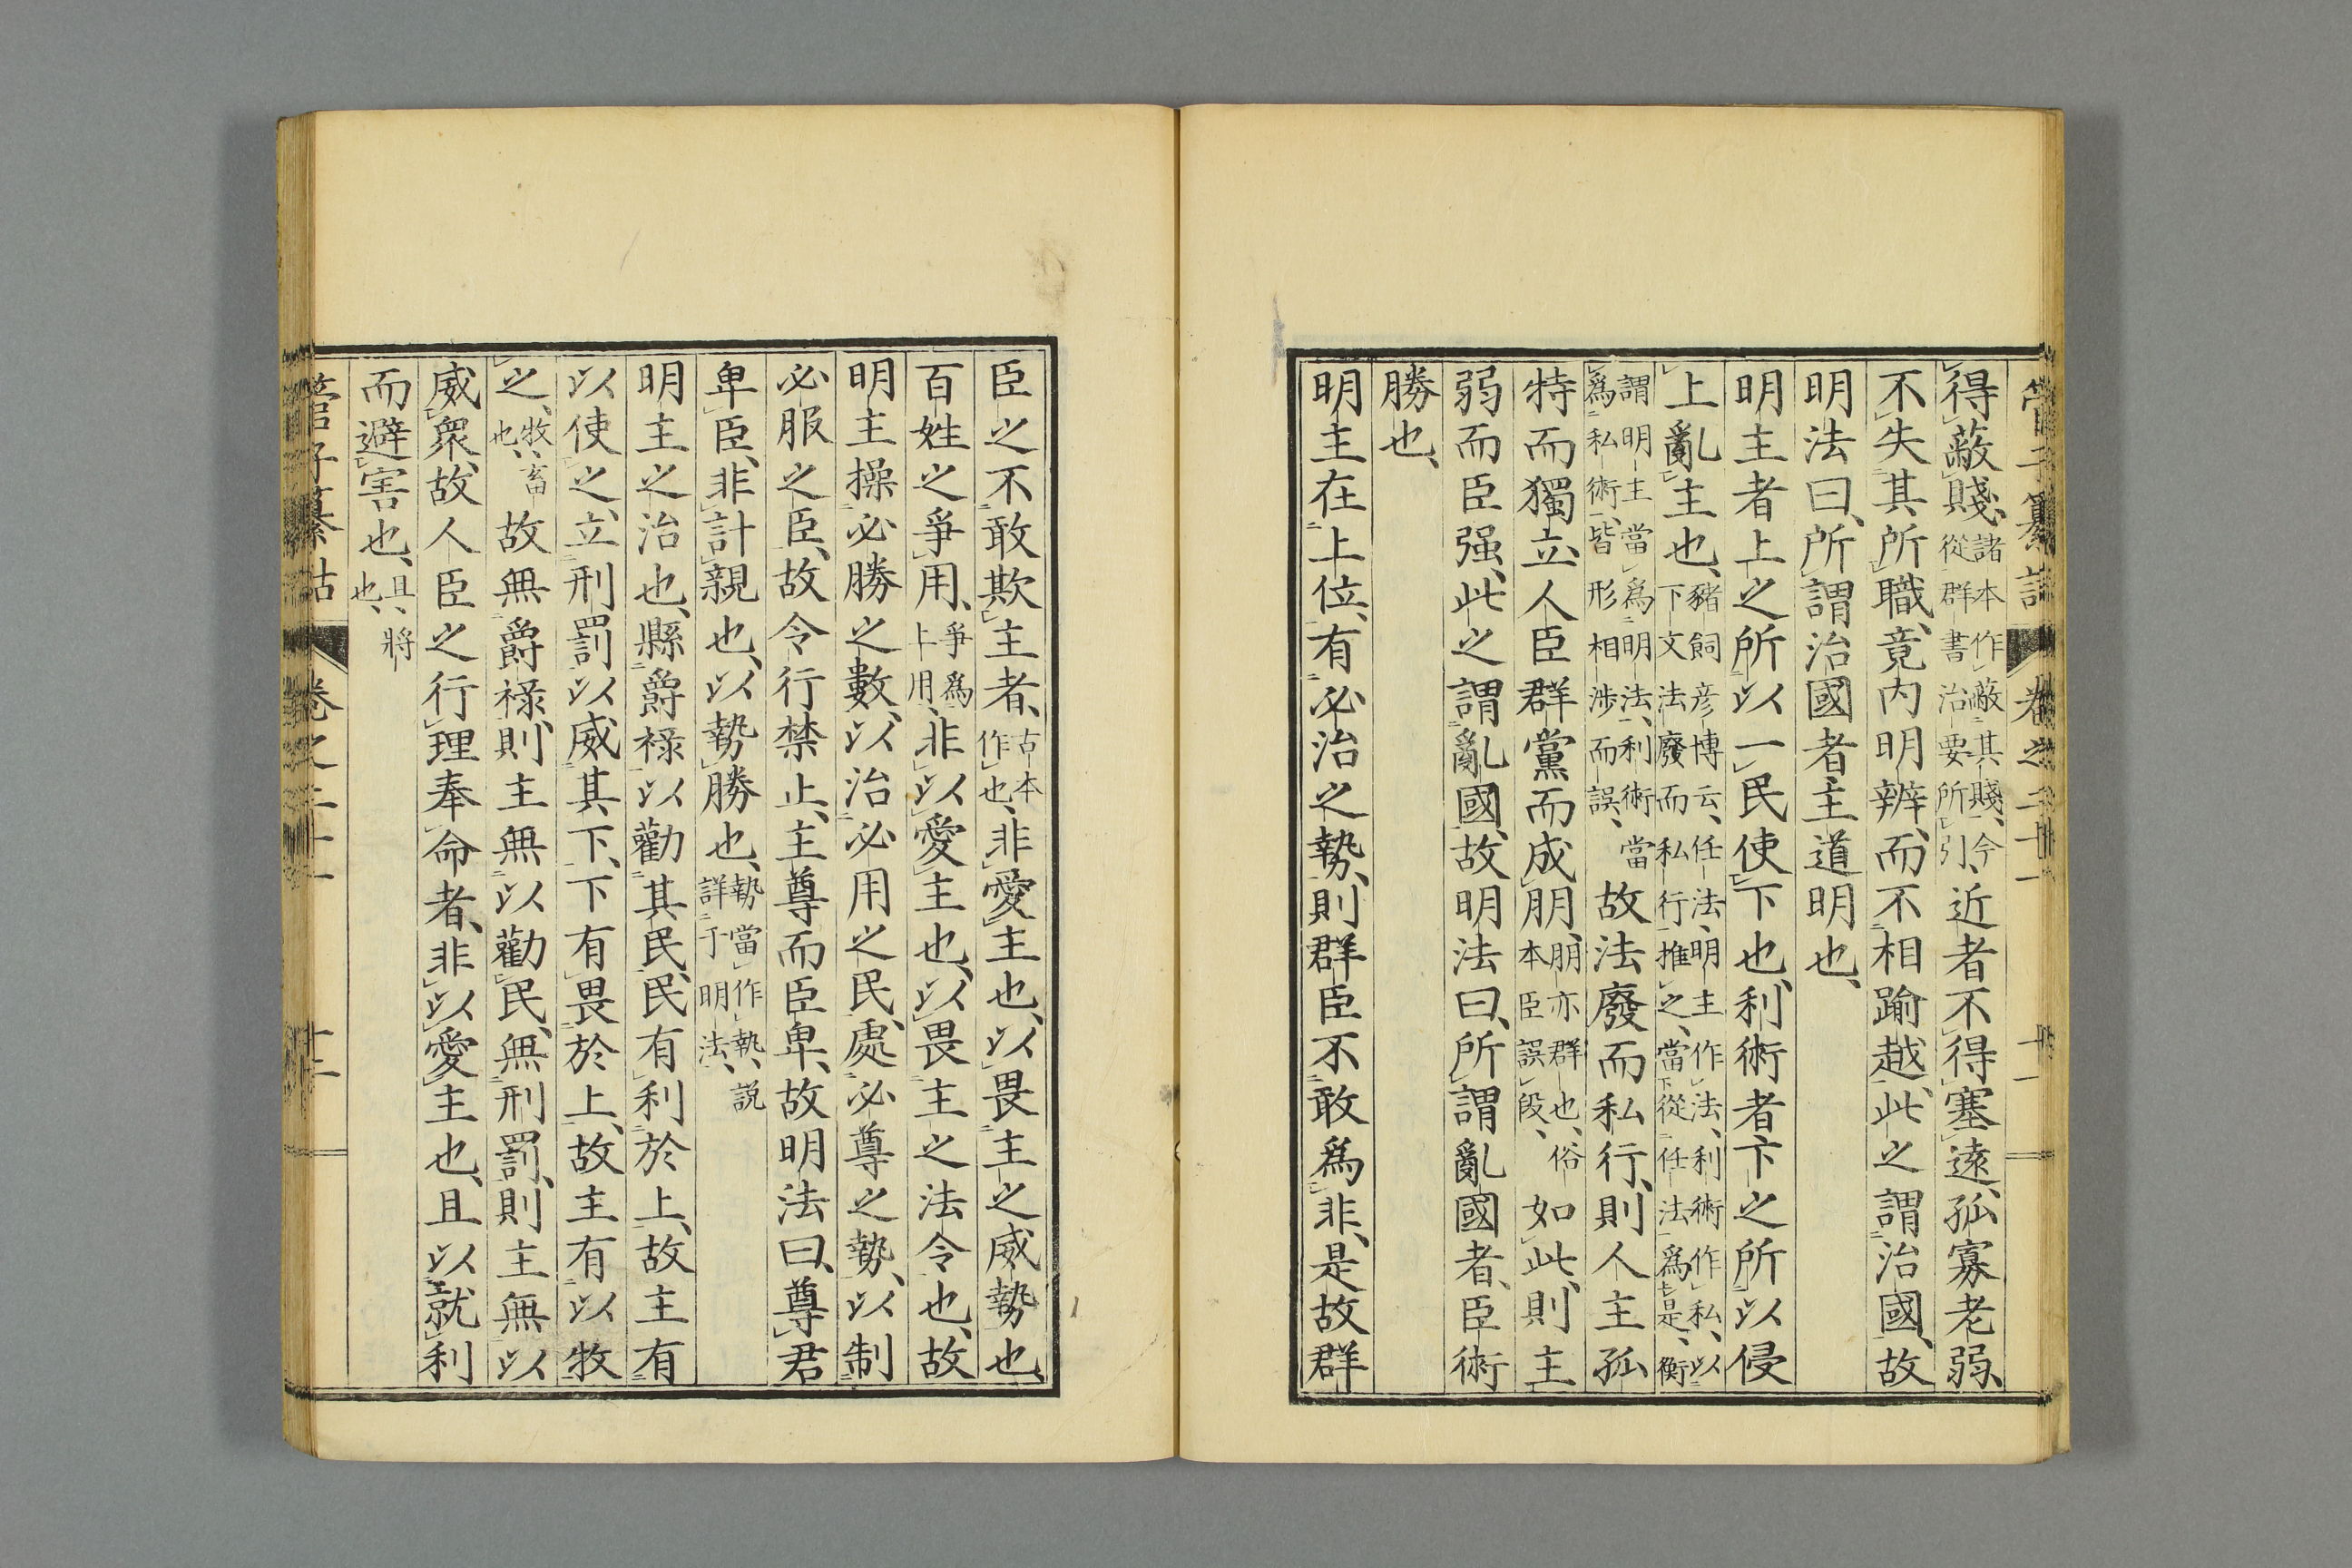 管子纂詁 卷之二十一 十一
得蔽賤、諸本作蔽其賤、今從群書治要所引、近者不得塞遠、孤寡老弱、
不失其所職、竟内明辨、而不相踰越、此之謂治國、故
明法曰、所謂治國者主道明也、
明主者上之所以一民使下也、利術者下之所以侵
上亂主也、豬飼彦博云、任法、明主作法、利術作私、以下文法廢而私行推之、當從任法爲是、衡
謂明主當爲明法、利術當爲私術、皆形相涉而誤、故法廢而私行、則人主孤
特而獨立、人臣群黨而成朋、朋亦群也、俗本臣誤段、如此、則主
弱而臣强、此之謂亂國、故明法曰、所謂亂國者、臣術
勝也、
明主在上位、有必治之勢、則群臣不敢爲非、是故群
臣之不敢欺主者、古本作也、非愛主也、以畏主之威勢也、
百姓之爭用、爭爲上用、非以愛主也、以畏主之法令也、故
明主操必勝之數、以治必用之民、處必尊之勢、以制
必服之臣、故令行禁止、主尊而臣卑、故明法曰、尊君
卑臣、非計親也、以勢勝也、勢當作執、説詳于明法、
明主之治也、縣爵祿以勸其民、民有利於上、故主有
以使之、立刑罰以威其下、下有畏於上、故主有以牧
之、牧、畜也、故無爵祿、則主無以勸民、無刑罰、則主無以
威衆、故人臣之行理奉命者、非以愛主也、且以就利
而避害也、且、將也、
管子纂詁 卷之二十一 十二